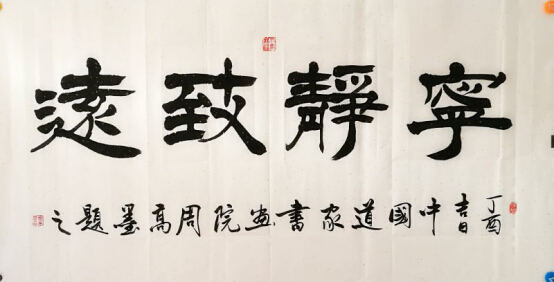 寧靜致遠
丁酉吉日中國道家書畫院周高墨題之